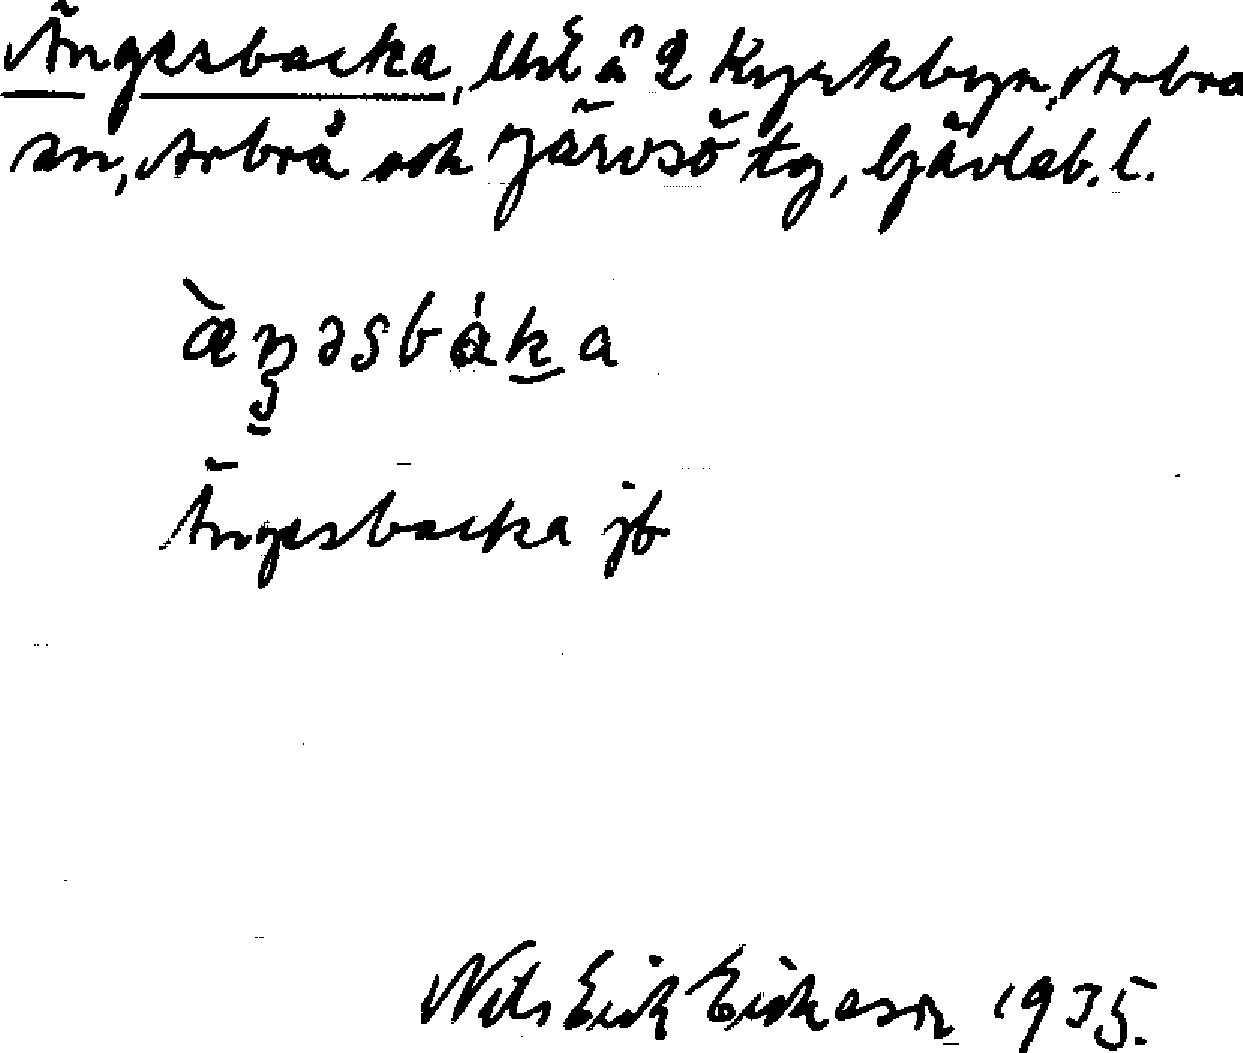 Ängesbacka, å 2 Kyrkbyn, Arbrå
sn, Arbrå och Järvsö tg, Gävleb. l.
æ̀ŋəsbáka
Ängesbacka jb
Nils Erik Eriksson 1935.